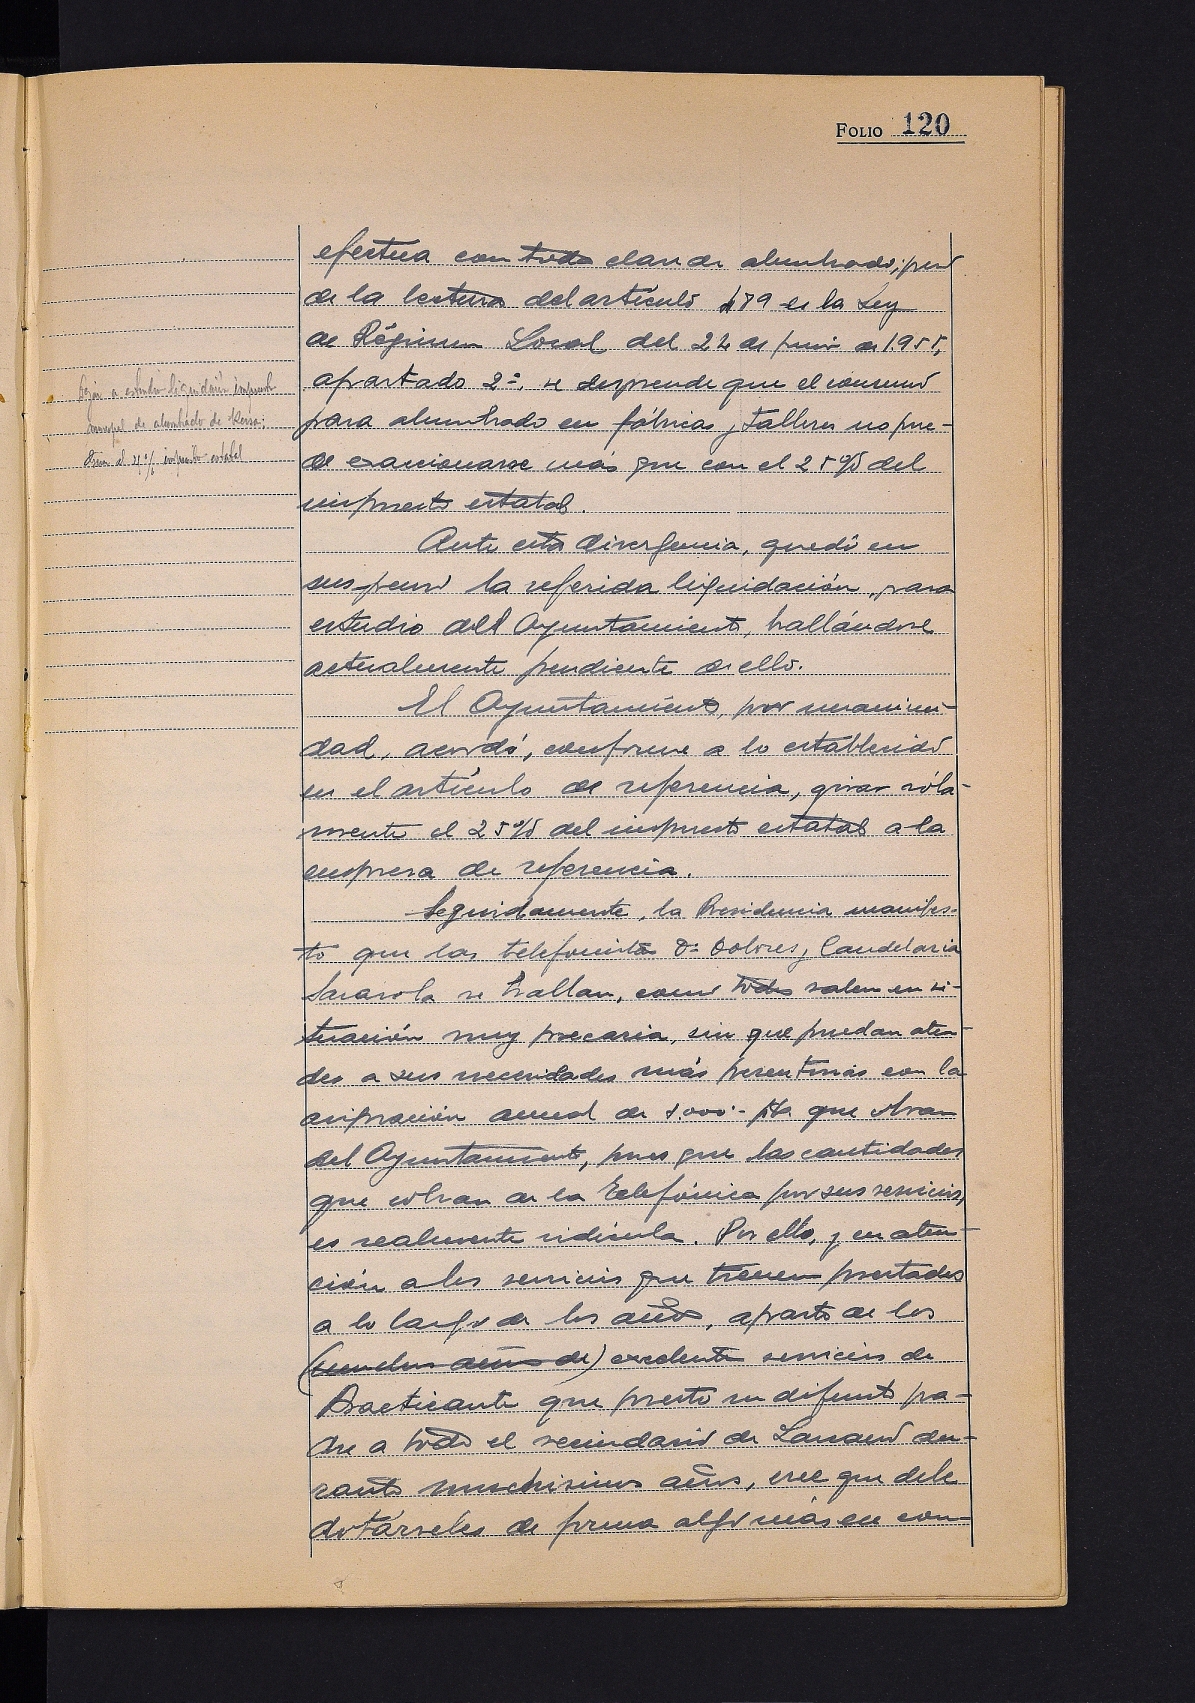 FOLIO 120
efectúa con toda clase de alumbrado; pero
de la lectura del artículo 479 de la Ley
de Régimen Local del 24 de junio de 1.955,
apartado 2º, se desprende que el consumo
para alumbrado en fábricas y talleres no pue-
de exaccionarse más que con el 25 % del
impuesto estatal.
Ante esta divergencia, quedó en
suspenso la referida liquidación, para
estudio del Ayuntamiento, hallándose
actualmente pendiente de ello.
El Ayuntamiento, por unanimi-
dad, acordó, conforme a lo establecido
en el artículo de referencia, girar sóla-
mente el 25 % del impuesto estatal a la
empresa de referencia.
Seguidamente, la Presidencia manifes-
tó que las telefonistas Dª Dolores y Candelaria
Sarasola se hallan, como todos saben en si-
tuación muy precaria, sin que puedan aten-
der a sus necesidades más perentorias con la
asignación anual de 1.000.- pts. que cobran
del Ayuntamiento, pues que las cantidades
que cobran de la Telefónica por sus servicios,
es realmente ridícula. Por ello, y en aten-
ción a los servicios que tienen prestados
a lo largo de los años, aparte de los
(muchos años de) excelentes servicios de
Practicante que prestó su difunto pa-
dre a todo el vecindario de Lasarte du-
rante muchísimos años, cree que debe
dotárseles de forma algo más en con-
impuesto
municipal de alumbrado de
impuesto estatal